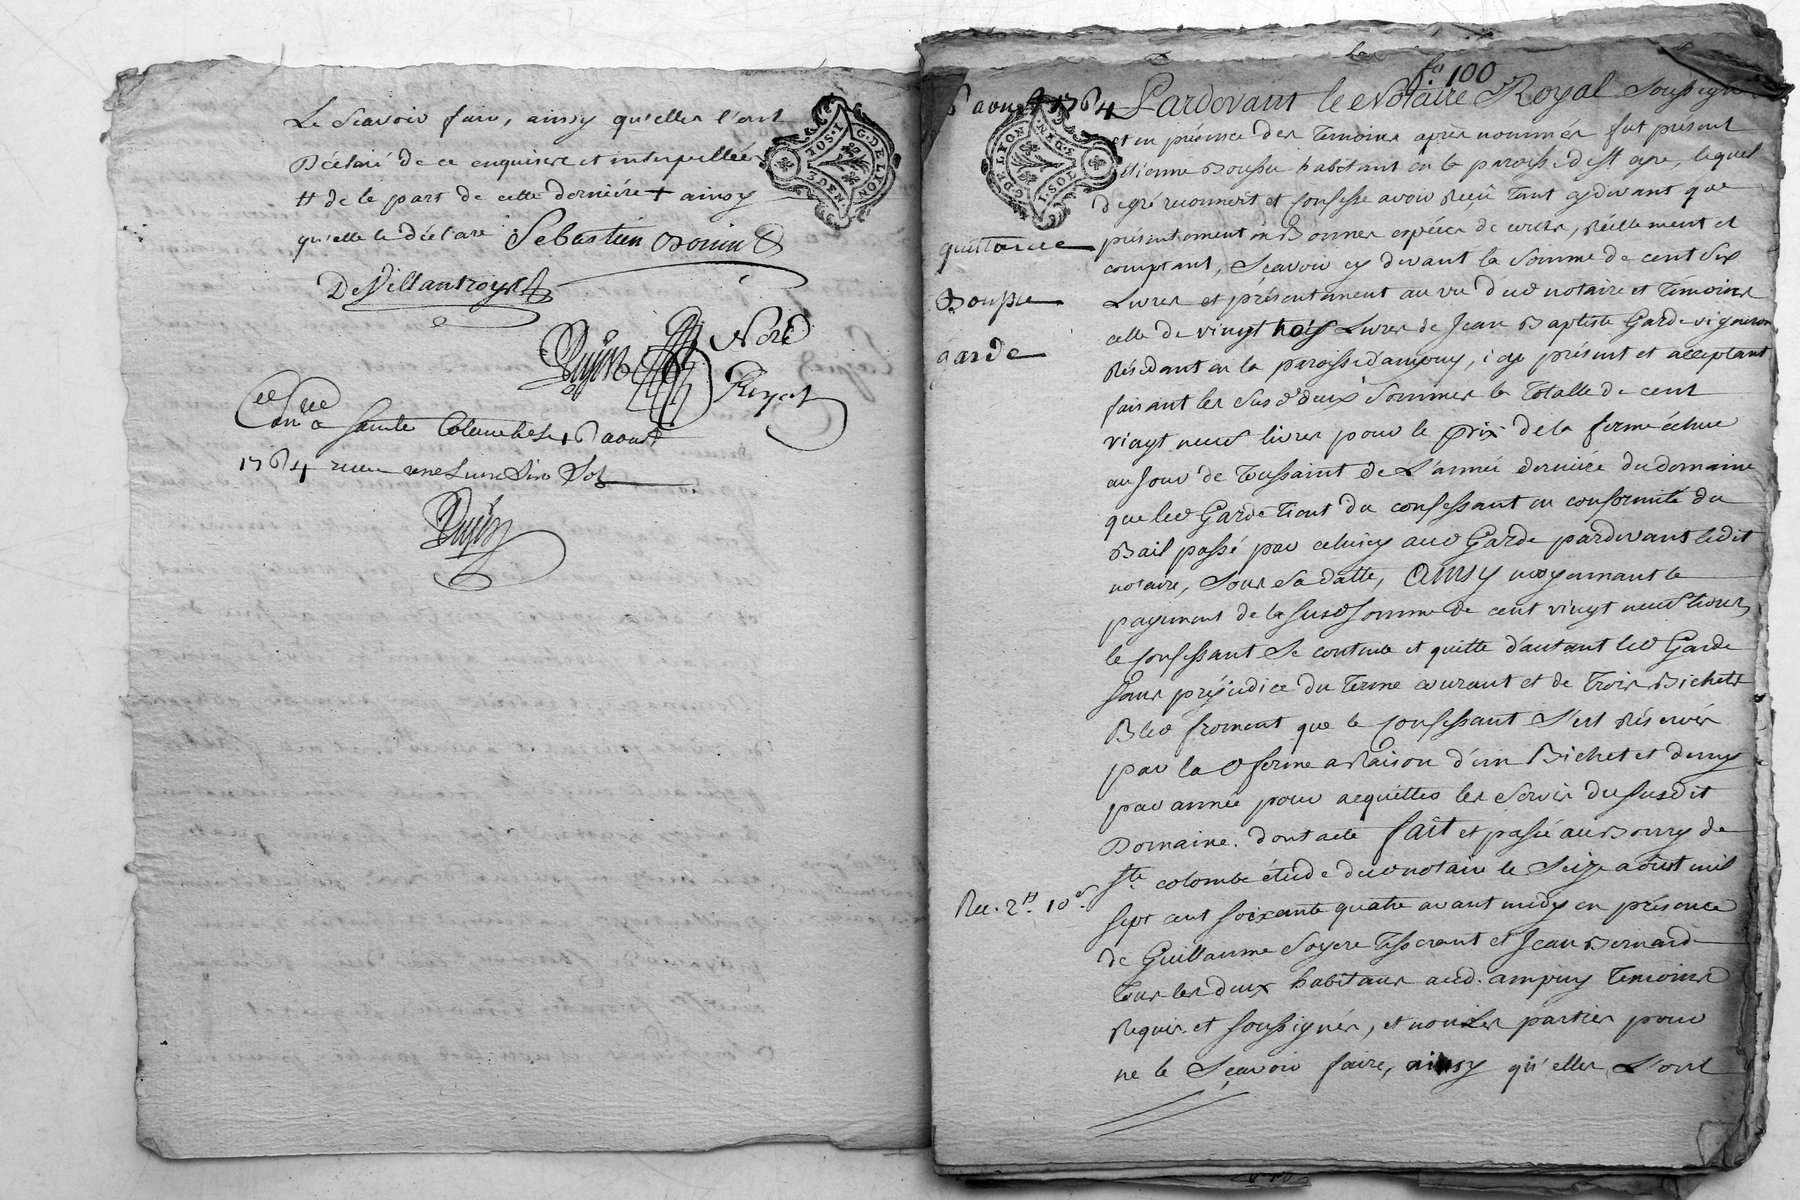 Le Scavoir faire, ainsy qu'elles l'ont
Déclaré de ce enquises et interpellées
de la part de cette derniere + ainsy
qu'elle le déclare Sebastien Bonin
DeVillantroys
Not.
Royal
Con. a Sainte Colombe le 16 aoust
1764 receu une Livre Six Sols
GNE. DE LYON
2 SOLS
GNE. DE LYON
2 SOLS
fo. 100
16 aoust 1764 Pardevant le Notaire Royal Soussigné
et en présence des Temoins apres nommés fut présent
étienne Boussu habitant en la paroisse de
lequel
degré reconnoit et confesse avoir Receu tant cydevant que
quittance
présentement en Bonnes espéces de cours, Réellement et
comptant, Scavoir cy devant la Somme de cent Six
Boussu
Livres et présentement au vu dud notaire et Temoins
celle de vingt trois Livres de Jean Baptiste Garde vigneron
garde
Résidant en la paroisse d'ampuy, icy présent et acceptant
faisant les Susd deux Sommes la Totalle de cent
vingt neuf livres pour le prix de la ferme échue
au Jour de Toussaint de L'année derniére du domaine
que led Garde Tient du confessant en conformité du
Bail passé par celuicy aud Garde pardevant ledit
notaire, Sous Sa datte, Ainsy moyennant le
payement de la Susd Somme de cent vingt neuf livres
le confessant Se contente et quitte d'autant led Garde
Sans préjudice du Terme courant et de Trois Bichets
Bled froment que le confessant S'est Réservés
par la d ferme a Raison d'un Bichet et demy
par année pour acquitter les Servis du Susdit
Domaine. dont acte fait et passé au Bourg de
Ste. colombe étude dud notaire le Seize aoust mil
Rec. 2tt. 10s.
Sept cent Soixante quatre avant midy en présence
de Guillaume Soyere Tisserant et Jean Bernard
Tous les deux habitans aud. ampuy Temoins
Requis et Soussignés, et non Les parties pour
ne le Scavoir faire, ainsy qu'elles L'ont